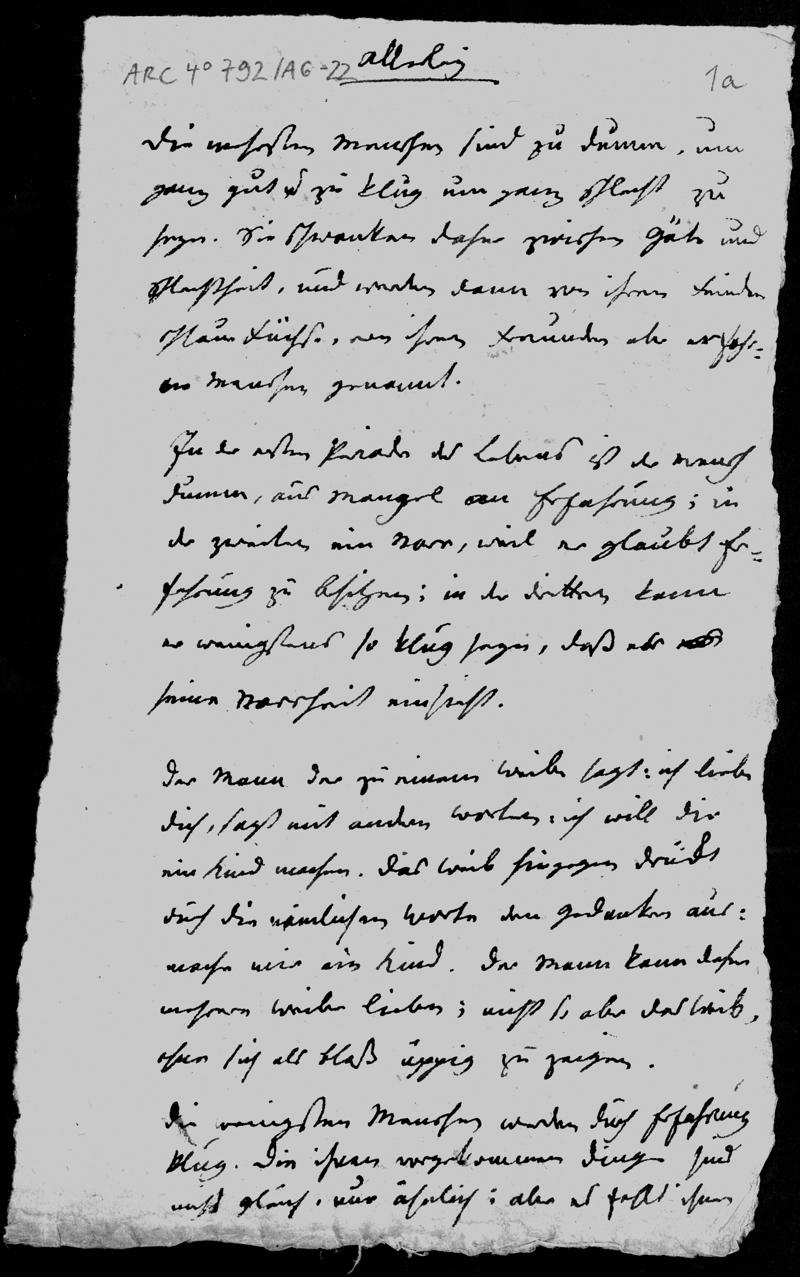 ARC 4° 792/A6-22 allerley 1a
Die mehrsten Menschen sind zu dumm, um
ganz gut u zu klug um ganz schlecht zu
seyn. Sie schwanken daher zwischen Güte und
Schlechtheit, und werden dann von ihren Feinden
schlaue Füchse, von ihren Freunden aber erfahr=
ne Menschen genannt.
In der ersten Periode des Lebens ist der Mensch
dumm, aus Mangel an Erfahrung; in
der zweiten ein Narr, weil er glaubt Er=
fahrung zu besitzen; in der dritten kann
er wenigstens so klug seyn, daß er
seine Narrheit einsieht.
Der Mann der zu einem Weibe sagt: ich liebe
dich, sagt mit andern Worten: ich will dir
ein Kind machen. Das Weib hingegen drückt
durch die nämlichen Worte den Gedanken aus:
mache mir ein Kind. Der Mann kann daher
mehrere Weiber lieben; nicht so aber das Weib,
ohne sich als bloß üppig zu zeigen.
Die wenigsten Menschen werden durch Erfahrung
klug. Die ihnen vorgekommenen Dinge sind
nicht gleich, nur ähnlich; aber es fehlt ihnen